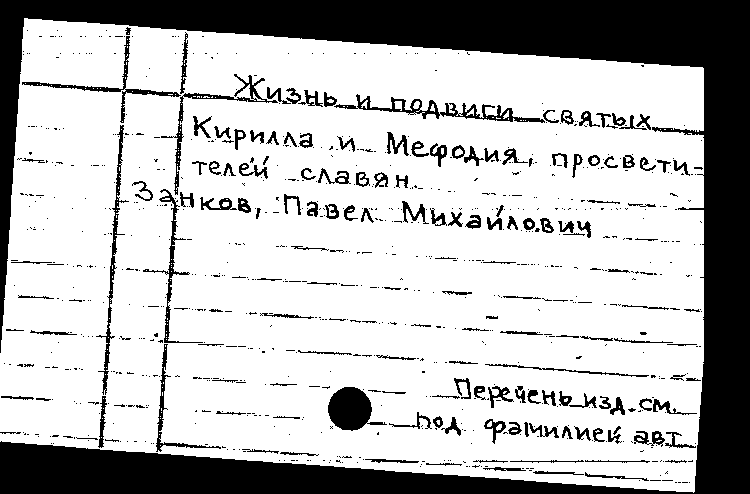 Жизнь и подвиги святых
Кирилла и Мефодия, просвети-
телей славян
Занков, Павел Михайлович
Перечень изд. см.
под фамилией авт.